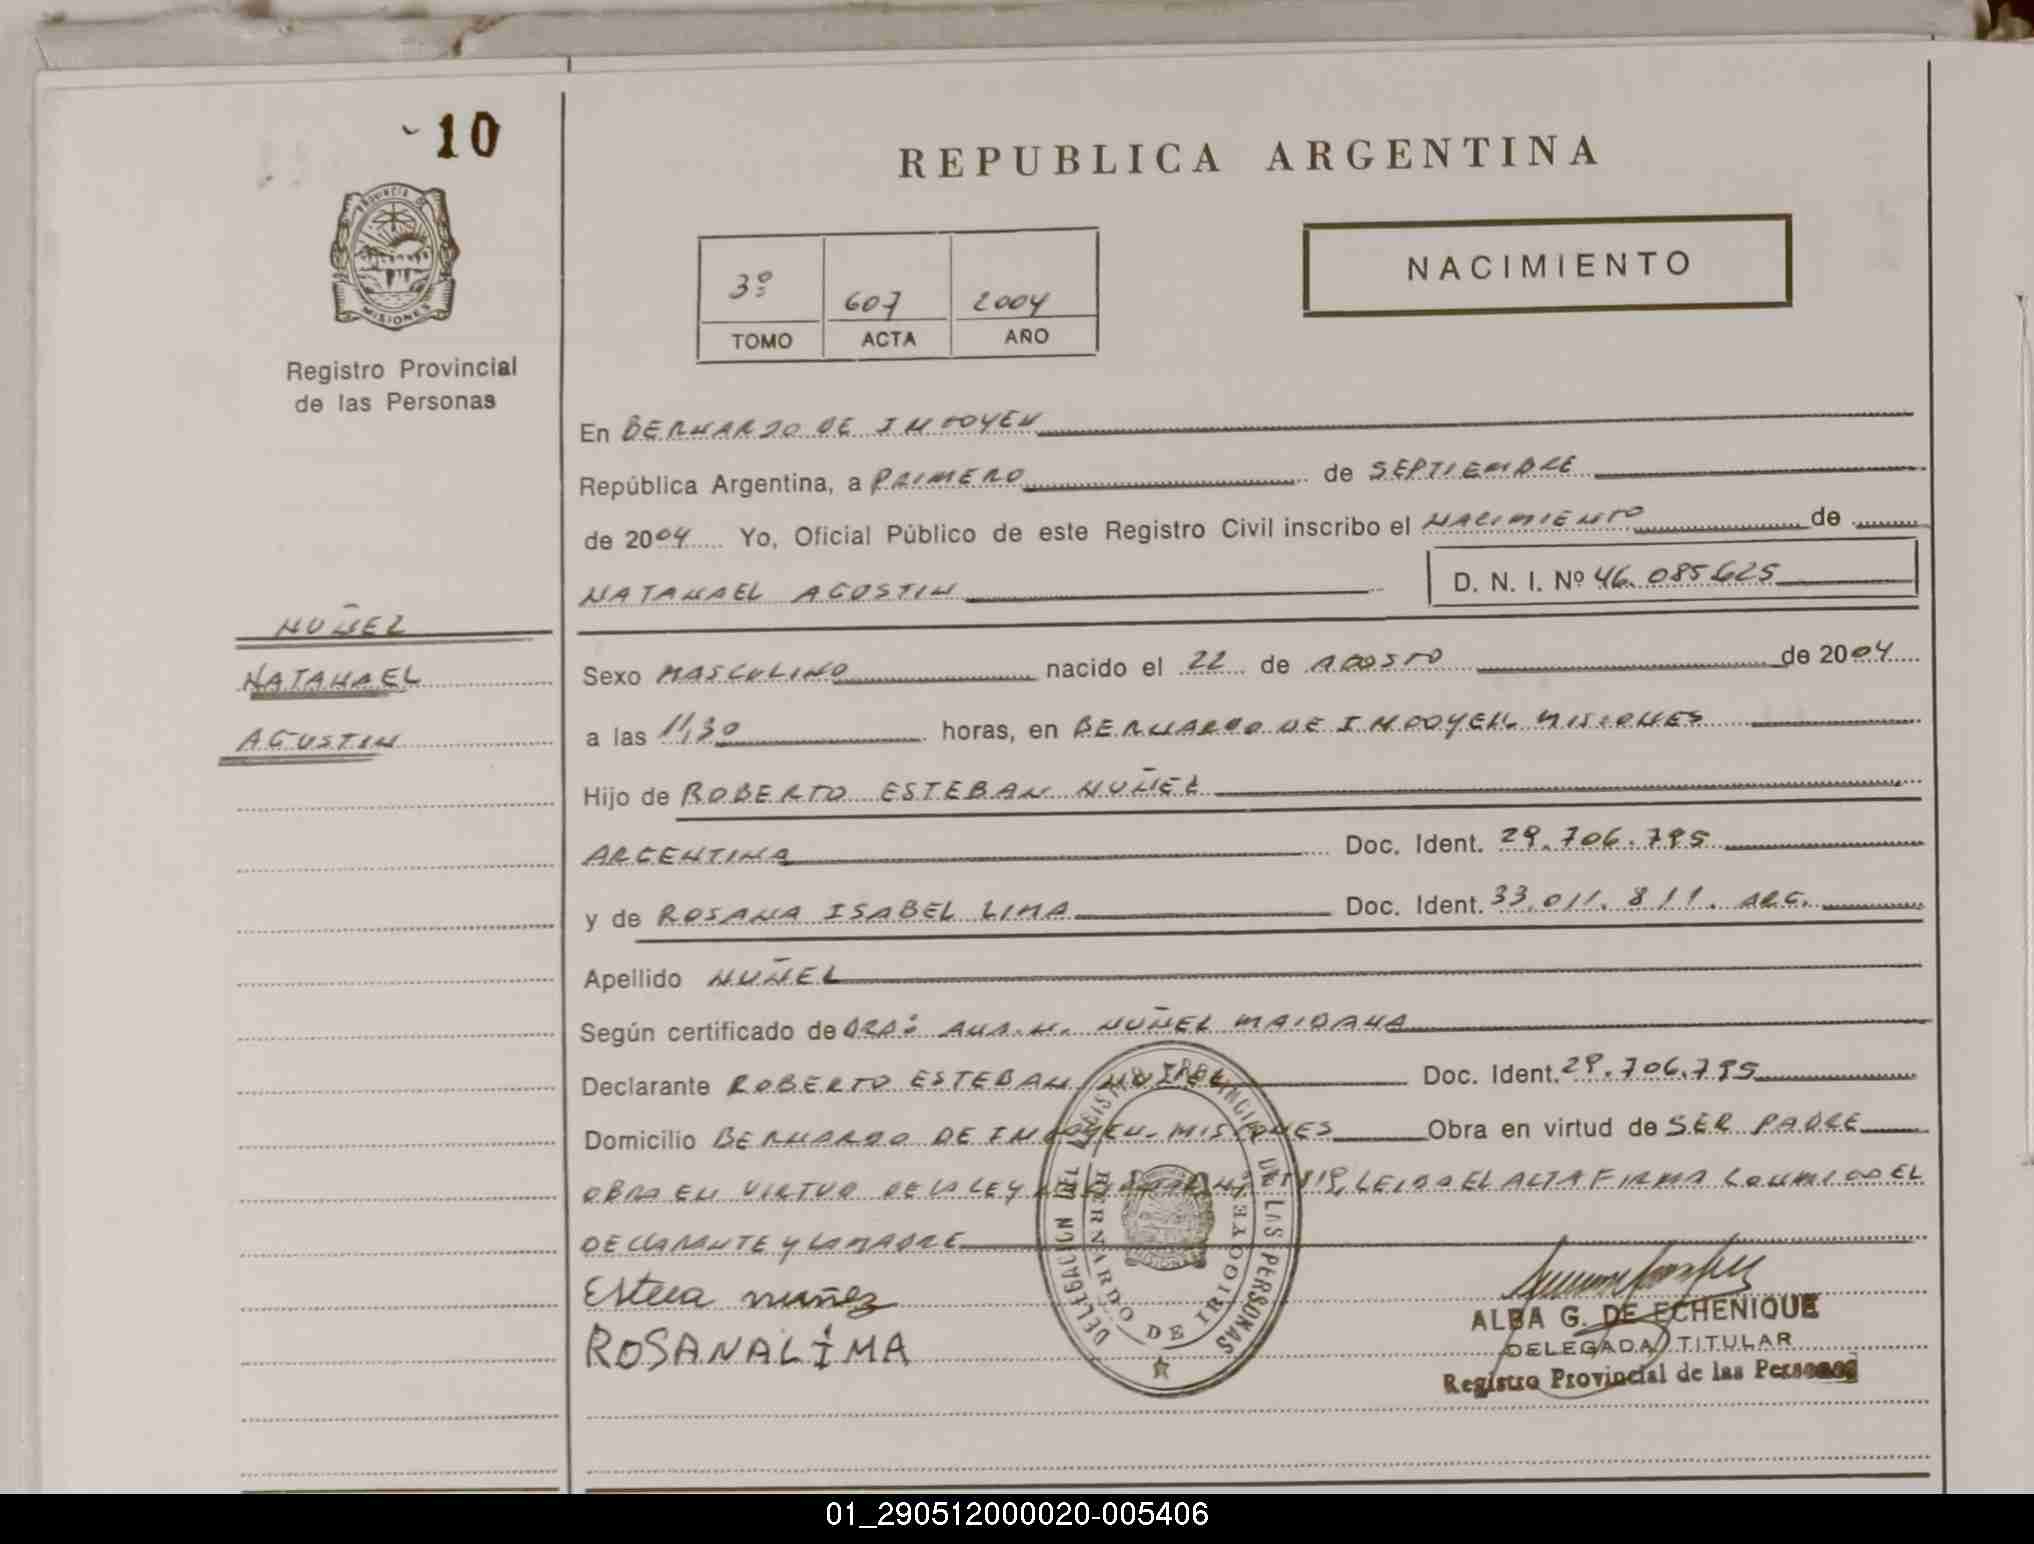 10
REPUBLICA ARGENTINA
PROVINCIA DE
MISIONES
NACIMIENTO
3º 607 2004
TOMO ACTA AÑO
Registro Provincial
de las Personas
En BERNARDO DE IRIGOYEN
República Argentina, a PRIMERO de SEPTIEMBRE
de 2004 Yo, Oficial Público de este Registro Civil inscribo el NACIMIENTO de
NATANAEL AGOSTIN D. N. I. Nº 46.085.625
NUÑEZ
NATANAEL
AGUSTIN
Sexo MASCULINO nacido el 22 de AGOSTO de 2004
a las 11,30 horas, en BERNARDO DE IRIGOYEN MISIONES
Hijo de ROBERTO ESTEBAN NUÑEZ
ARGENTINA Doc. Ident. 29.706.795
y de ROSANA ISABEL LIMA Doc. Ident. 33.011.811. ARG.
Apellido NUÑEZ
Según certificado de DRA: ANA. H. NUÑEZ MAIDANA
Declarante ROBERTO ESTEBAN NUÑEZ Doc. Ident. 29.706.795
Domicilio BERNARDO DE IRIGOYEN- MISIONES Obra en virtud de SER PADRE
OBRA EN VIRTUD DE LA LEY LEIDA EL ACTA FIRMA CONMIGO EL
DECLARANTE Y LA MADRE
nuñez
ROSANA LIMA
DELEGACION DEL REGISTRO PROVINCIAL DE LAS PERSONAS
BERNARDO DE IRIGOYEN
MISIONES
ALBA G. DE ECHENIQUE
DELEGADA TITULAR
Registro Provincial de las Personas
01_290512000020-005406